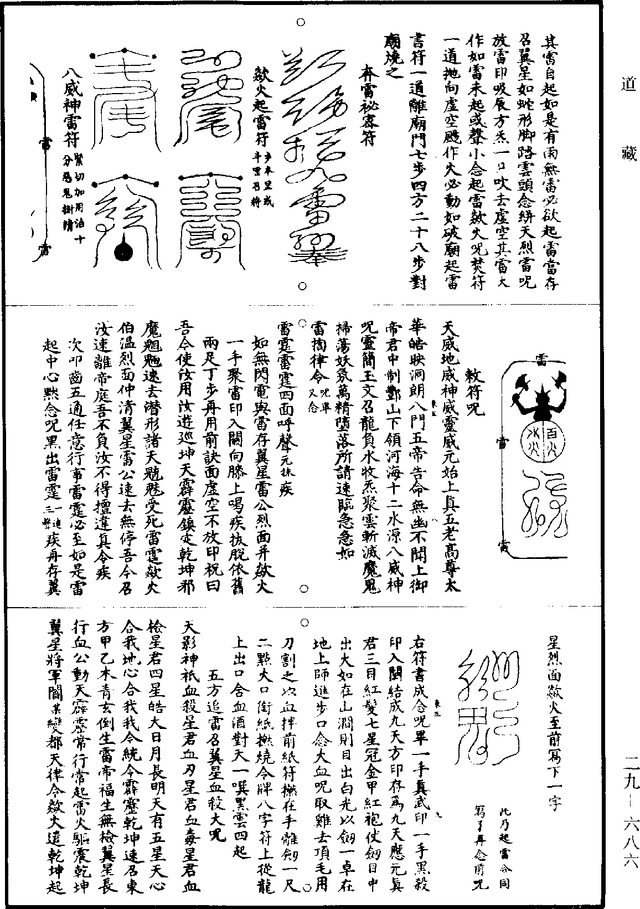 道藏
二九—六八六
其雷自起如是有雨無雷必欲起雷當存
召翼星如蛇形脚踏雲頭念絣天烈雷呪
放雷印吸辰方炁一口吹去虛空其雷大
作如雷未起或聲小合起雷歘火呪焚符
一道抛向虛空颷作大必動如破廟起雷
書符一道離廟門七步四方二十八步對
廟燒之
奔雷祕密符
歘火起雷符
八威神雷符
緊切加用治十
分惡鬼樹精
雷
雷
雷
雷
雷
百火
水火
敕符呪
天威地威神威靈威元始上真五老高尊太
華皓映洞朗八門五帝告命無幽不開上御
帝君中制酆山下領河海十二水源八威神
呪靈簡玉文召龍負水牧炁聚雲斬滅魔鬼
掃蕩妖氛萬精墮落所請速臨急急如
雷霆律令
呪畢
又念
雷霆雷霆四面呼聲元
如無閃電與當存翼星雷公烈面并歘火
一手聚雷印入關向膝上喝疾拔脫依舊
兩足丁步再用前訣面虛空不放印祝曰
吾今使汝用汝遊巡坤天霹靂鎮定乾坤邪
魔魍魎速去潛形諸天魑魅受死雷霆歘火
伯溫烈面仲清翼星雷公速去無停吾今召
汝速離帝庭吾不負汝不得擅違真令疾
次叩齒五通任意行事雷霆必至如是雷
起中心默念呪黑出雷霆
疾再存翼
星烈面歘火至前寫下一字
此乃起雷合同
寫了再念前呪
右符書成念呪畢一手真武印一手黑殺
印入關結成九天方印存為九天應元真
君三目紅髮七星冠金甲紅袍仗劒目中
出火如在山澗則目出白光以劒一卓在
地上師進步口念大血呪取雞去頂毛用
刀割之以血拌前紙符撫在手離劒一尺
二點火口銜紙撫燒令牌八字符上從龍
上出口含血酒對天一噀黑雲四起
五方追雷召翼星血殺大呪
天影神祇血殺星君血刃星君血毒星君血
檢星君四星皓大日月長明天有五星天心
合我地心合我我今統令霹靂乾坤速召東
方甲乙木青玄倒生雷帝福生無檢翼星長
行血公動天霹靂常行常起雷火驅震乾坤
翼星將軍閽某變都天律令歘火遠乾坤起